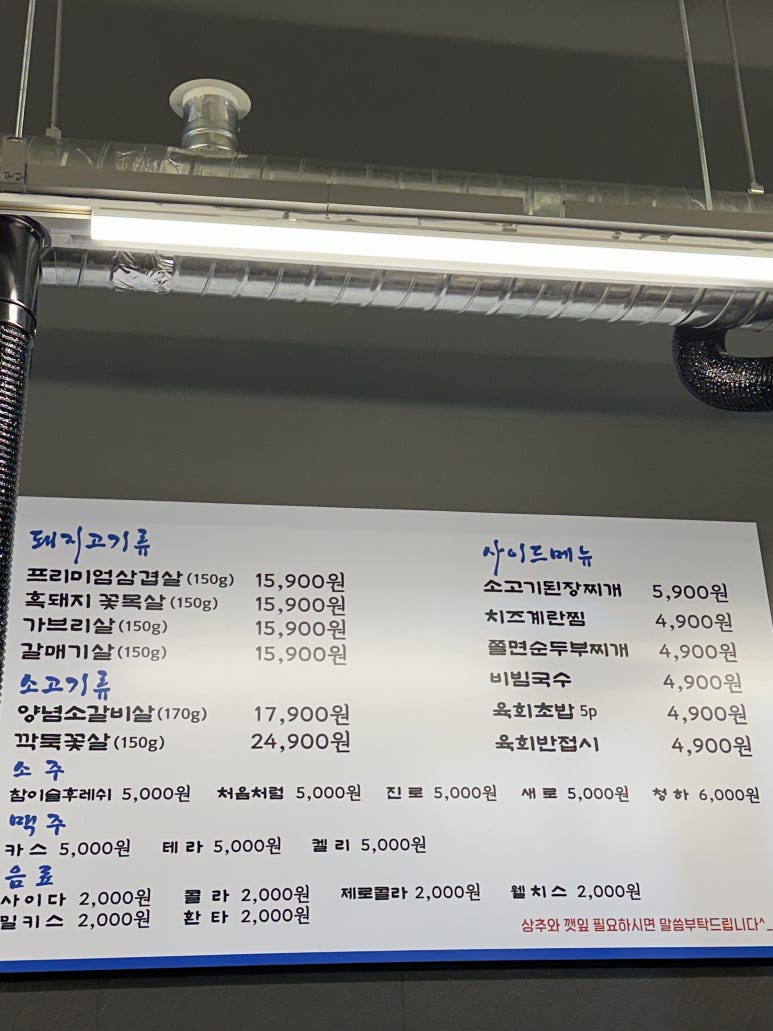 돼지고기류
프리미엄삼겹살 (150g) 15,900원
흑돼지 꽃목살 (150g) 15,900원
가브리살 (150g) 15,900원
갈매기살 (150g) 15,900원
소고기류
양념소갈비살 (170g) 17,900원
깍둑꽃살 (150g) 24,900원
사이드메뉴
소고기된장찌개 5,900원
치즈계란찜 4,900원
쫄면순두부찌개 4,900원
비빔국수 4,900원
육회초밥 5p 4,900원
육회반접시 4,900원
소주
참이슬후레쉬 5,000원 처음처럼 5,000원 진로 5,000원 새로 5,000원 청하 6,000원
맥주
카스 5,000원 테라 5,000원 켈리 5,000원
음료
사이다 2,000원 콜라 2,000원 제로콜라 2,000원 웰치스 2,000원
밀키스 2,000원 환타 2,000원
상추와 깻잎 필요하시면 말씀부탁드립니다^_